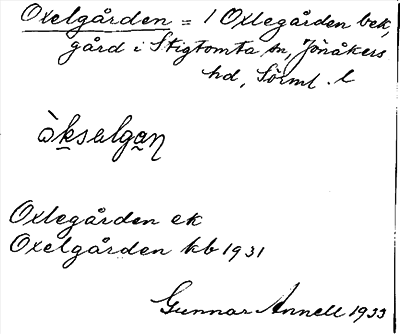 Oxelgården = 1 Oxlegården bek,
gård i Stigtomta sn, Jönåkers
hd, Sörml. l
òksalgan
Oxlegården ek
Oxelgården kb 1931
Gunnar Annell 1933